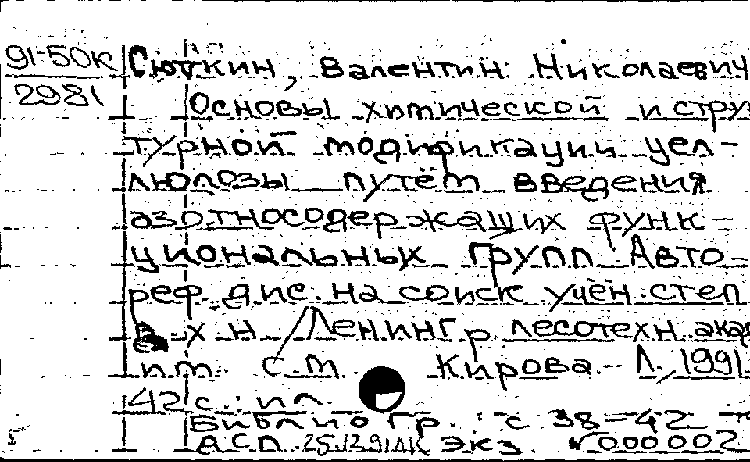 91-50к Сюткин, Валентин Николаевич
2981 Основы химической и стру
турной модификации цел-
люлозы путём введения
азотносодержащих функ-
циональных групп. Авто-
реф. дис. на соиск. учен. степ
х н /Ленингр. лесотехн. ака
им. С.М. Кирова. Л., 1991.
42 с.: ил.
Библиогр.: с. 38-42
ДСП экз. 000002